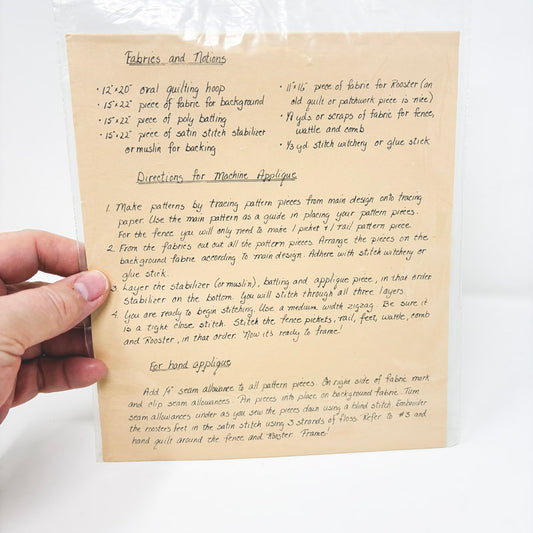 Fabrics and Notions
• 12"x20" oval quilting hoop
• 15"x22" piece of fabric for background
• 15"x22" piece of poly batting
• 15"x22" piece of satin stitch stabilizer
or muslin for backing
• 11"x16" piece of fabric for Rooster (an
old quilt or patchwork piece is nice)
• yds. or scraps of fabric for fence,
wattle and comb
• 1/3 yd. stitch witchery or glue stick
Directions for Machine Applique
1. Make patterns by tracing pattern pieces from main design onto tracing
paper. Use the main pattern as a guide in placing your pattern pieces.
For the fence you will only need to make 1 picket & 1 rail pattern piece.
2. From the fabrics cut out all the pattern pieces. Arrange the pieces on the
background fabric according to main design. Adhere with stitch witchery or
glue stick.
3. Layer the stabilizer (or muslin), batting and applique piece, in that order
Stabilizer on the bottom. You will stitch through all three layers.
4. You are ready to begin stitching. Use a medium width zigzag. Be sure it
is a tight close stitch. Stitch the fence pickets, rail, feet, wattle, comb
and Rooster, in that order. Now it's ready to frame!
For hand applique
Add 1/4" seam allowance to all pattern pieces. On right side of fabric mark
and clip seam allowances. Pin pieces into place on background fabric. Turn
seam allowances under as you sew the pieces down using a blind stitch. Embroider
the roosters feet in the satin stitch using 3 strands of floss. Refer to #3 and
hand quilt around the fence and Rooster. Frame!